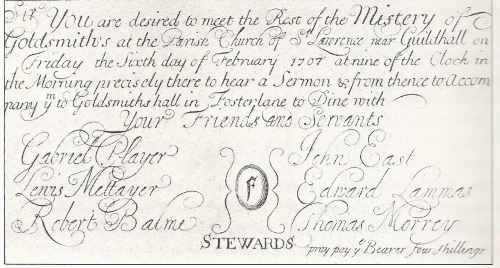 Sir You are desired to meet the Rest of the Mistery of
Goldsmiths at the Parish Church of St Lawrence near Guildhall on
Friday the Sixth day of February 1707 at nine of the Clock in
the Morning precisely there to hear a Sermon & from thence to Accom
pany ym to Goldsmiths hall in Fosterlane to Dine with
Your Friends and Servants
Gabriel Player John East
Lewis Mettayer f Edward Lammas
Robert Balme Thomas Morrey
STEWARDS pray pay ye Bearer four shillings